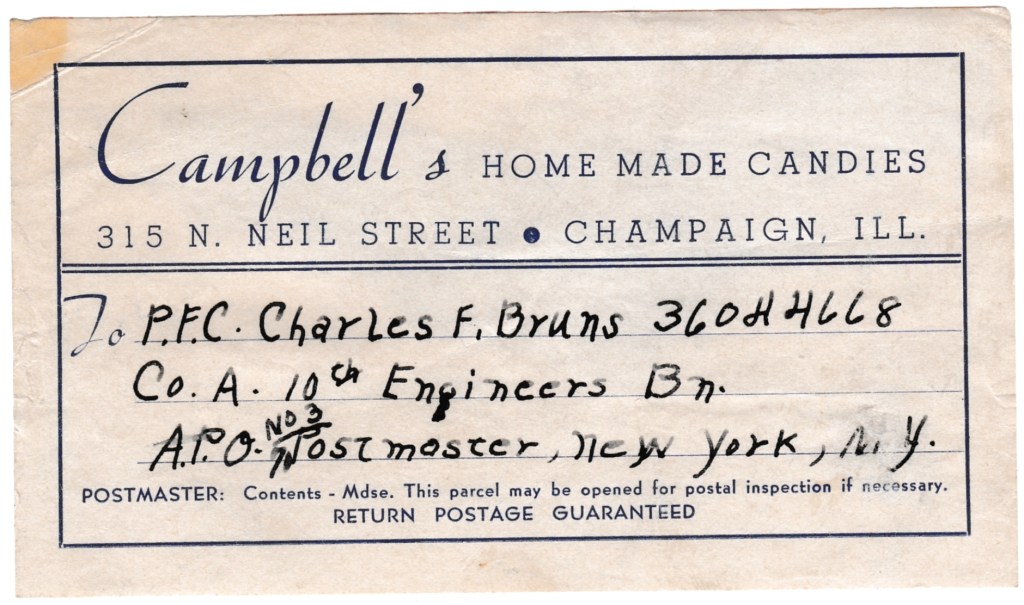 Campbell's HOME MADE CANDIES
315 N. NEIL STREET • CHAMPAIGN, ILL.
To P.F.C. Charles F. Bruns 36044668
Co. A. 10th Engineers Bn.
A.P.O. NO 3 Postmaster, New York, N.Y.
POSTMASTER: Contents - Mdse. This parcel may be opened for postal inspection if necessary.
RETURN POSTAGE GUARANTEED